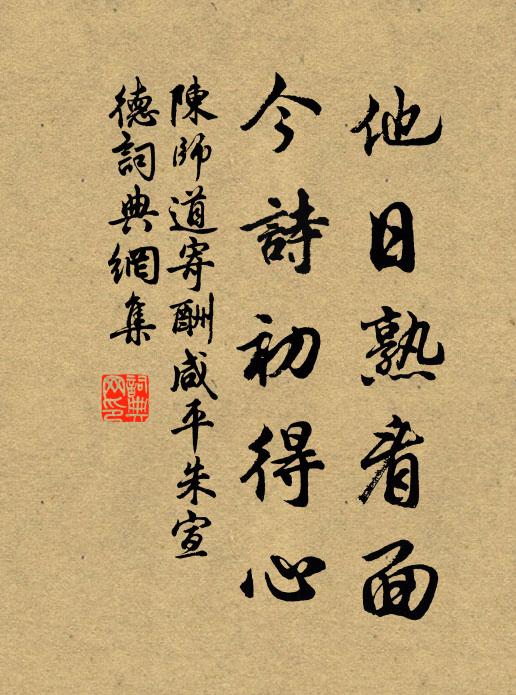 他日熟看面
今詩初得心
陳師道寄酬咸平朱宣
德詞典網集
詞典
网印